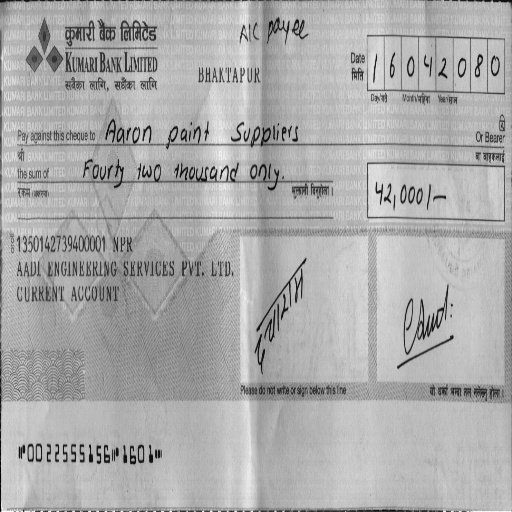 A/C payee
कुमारी बैंक लिमिटेड
KUMARI BANK LIMITED
सबैका लागि, सधैंका लागि
BHAKTAPUR
Date
मिति
16042080
Day/गते Month/महिना Year/साल
Pay against this cheque to Aaron paint Suppliers Or Bearer
श्री वा वाहकलाई
the sum of Fourty two thousand only.
रकम (अक्षरुपी) भुक्तानी दिनुहोला।
42,000/-
1350142739400001 NPR
AADI ENGINEERING SERVICES PVT. LTD.
CURRENT ACCOUNT
Please do not write or sign below this line
⑈0022555156⑈1601⑈